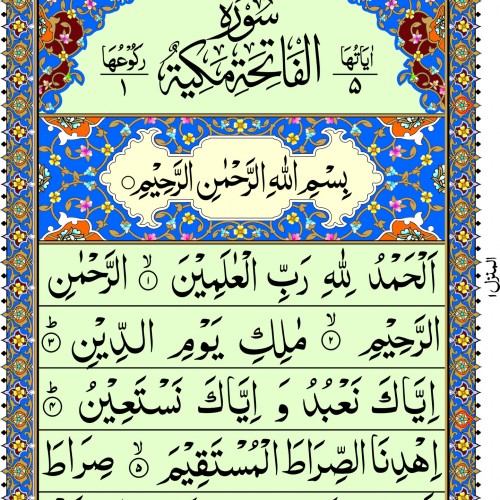 سُوْرَةُ
اٰيَاتُهَا ۵ الْفَاتِحَةِ مَكِّيَّةٌ رُكُوْعُهَا ۱
بِسْمِ اللهِ الرَّحْمٰنِ الرَّحِيْمِ ○
اَلْحَمْدُ لِلّٰهِ رَبِّ الْعٰلَمِيْنَ ۙ﴿۱﴾ الرَّحْمٰنِ
الرَّحِيْمِ ۙ﴿۲﴾ مٰلِكِ يَوْمِ الدِّيْنِ ؕ﴿۳﴾
اِيَّاكَ نَعْبُدُ وَ اِيَّاكَ نَسْتَعِيْنُ ؕ﴿۴﴾
اِهْدِنَا الصِّرَاطَ الْمُسْتَقِيْمَ ۙ﴿۵﴾ صِرَاطَ
المنزل ۱